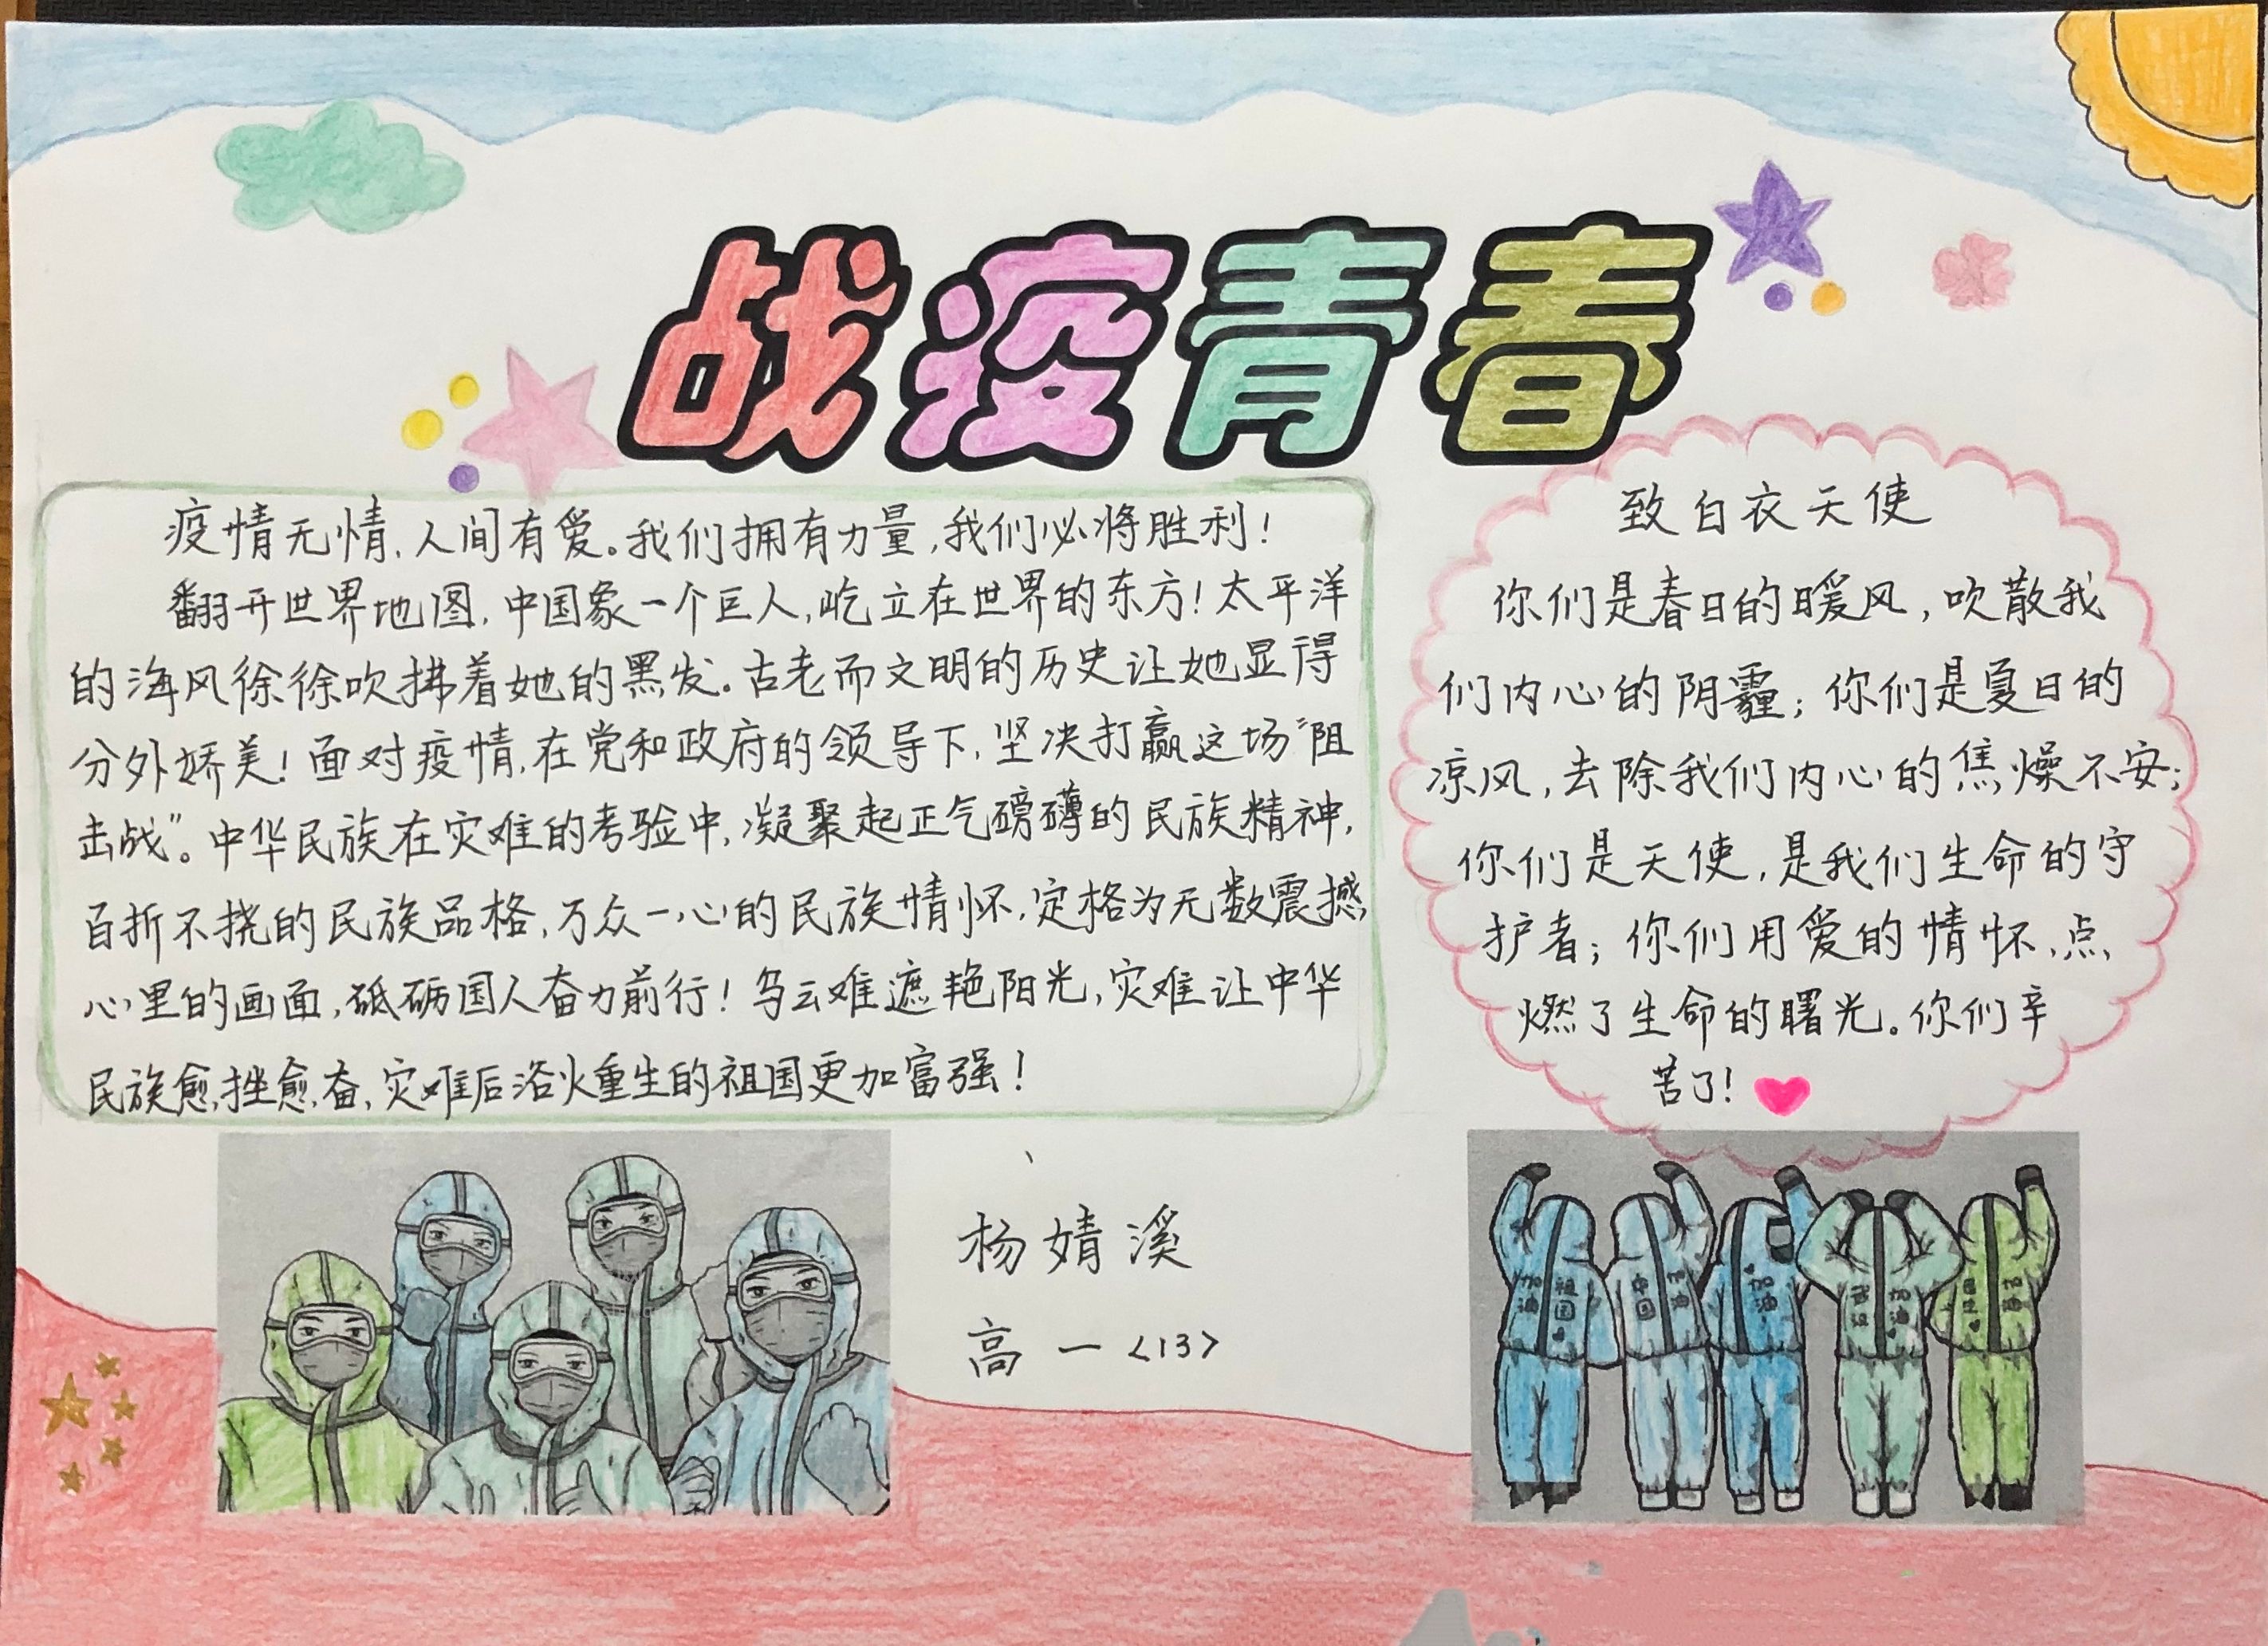 战疫青春
疫情无情,人间有爱。我们拥有力量,我们必将胜利!
翻开世界地图,中国象一个巨人,屹立在世界的东方!太平洋
的海风徐徐吹拂着她的黑发。古老而文明的历史让她显得
分外娇美!面对疫情,在党和政府的领导下,坚决打赢这场“阻
击战”。中华民族在灾难的考验中,凝聚起正气磅礴的民族精神,
百折不挠的民族品格,万众一心的民族情怀,定格为无数震撼
心里的画面,砥砺国人奋力前行!乌云难遮艳阳光,灾难让中华
民族愈挫愈奋,灾难后浴火重生的祖国更加富强!
致白衣天使
你们是春日的暖风,吹散我
们内心的阴霾;你们是夏日的
凉风,去除我们内心的焦燥不安;
你们是天使,是我们生命的守
护者;你们用爱的情怀,点
燃了生命的曙光。你们辛
苦了!
杨婧溪
高一<13>
祖国
加油
中国
加油
加油